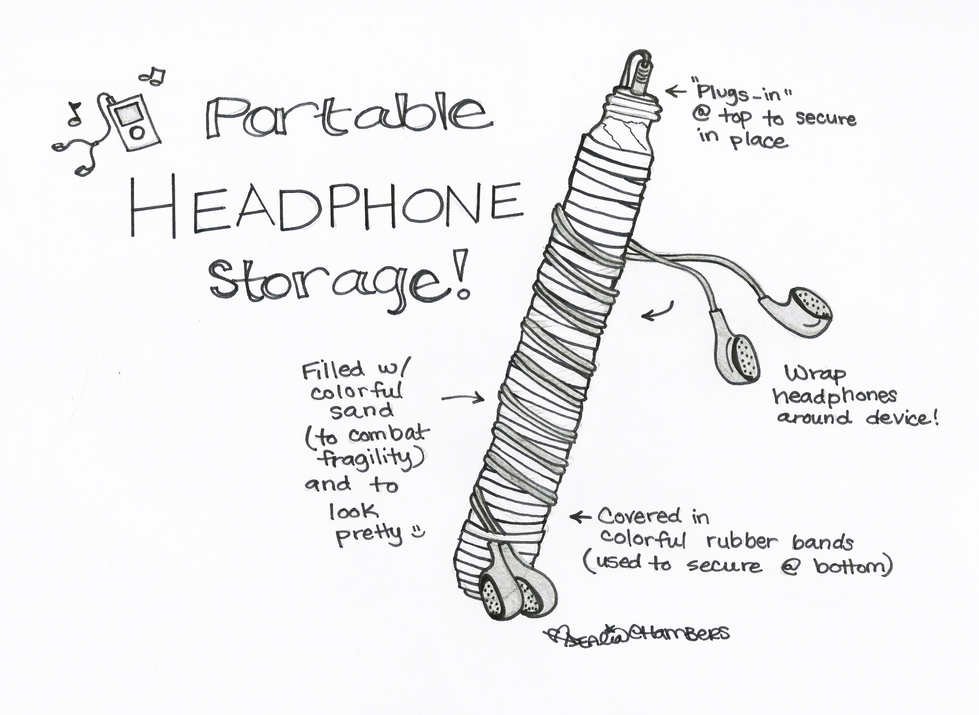 Portable
HEADPHONE
Storage!
"Plugs-in"
@ top to secure
in place
Wrap
headphones
around device!
Filled w/
colorful
sand
(to combat
fragility)
and to
look
pretty
Covered in
colorful rubber bands
(used to secure @ bottom)
CHAMBERS